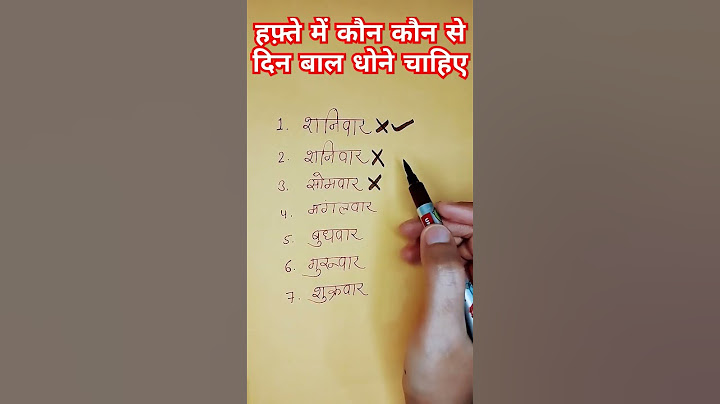 हफ़्ते में कौन कौन से
दिन बाल धोने चाहिए
1. शनिवार ✗✓
2. शनिवार ✗
3. सोमवार ✗
4. मगलवार
5. बुधवार
6. गुरुवार
7. शुक्रवार